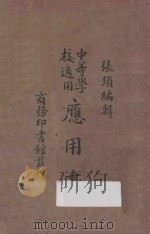 張須編輯
中等學
校適用
應用
商務印書館